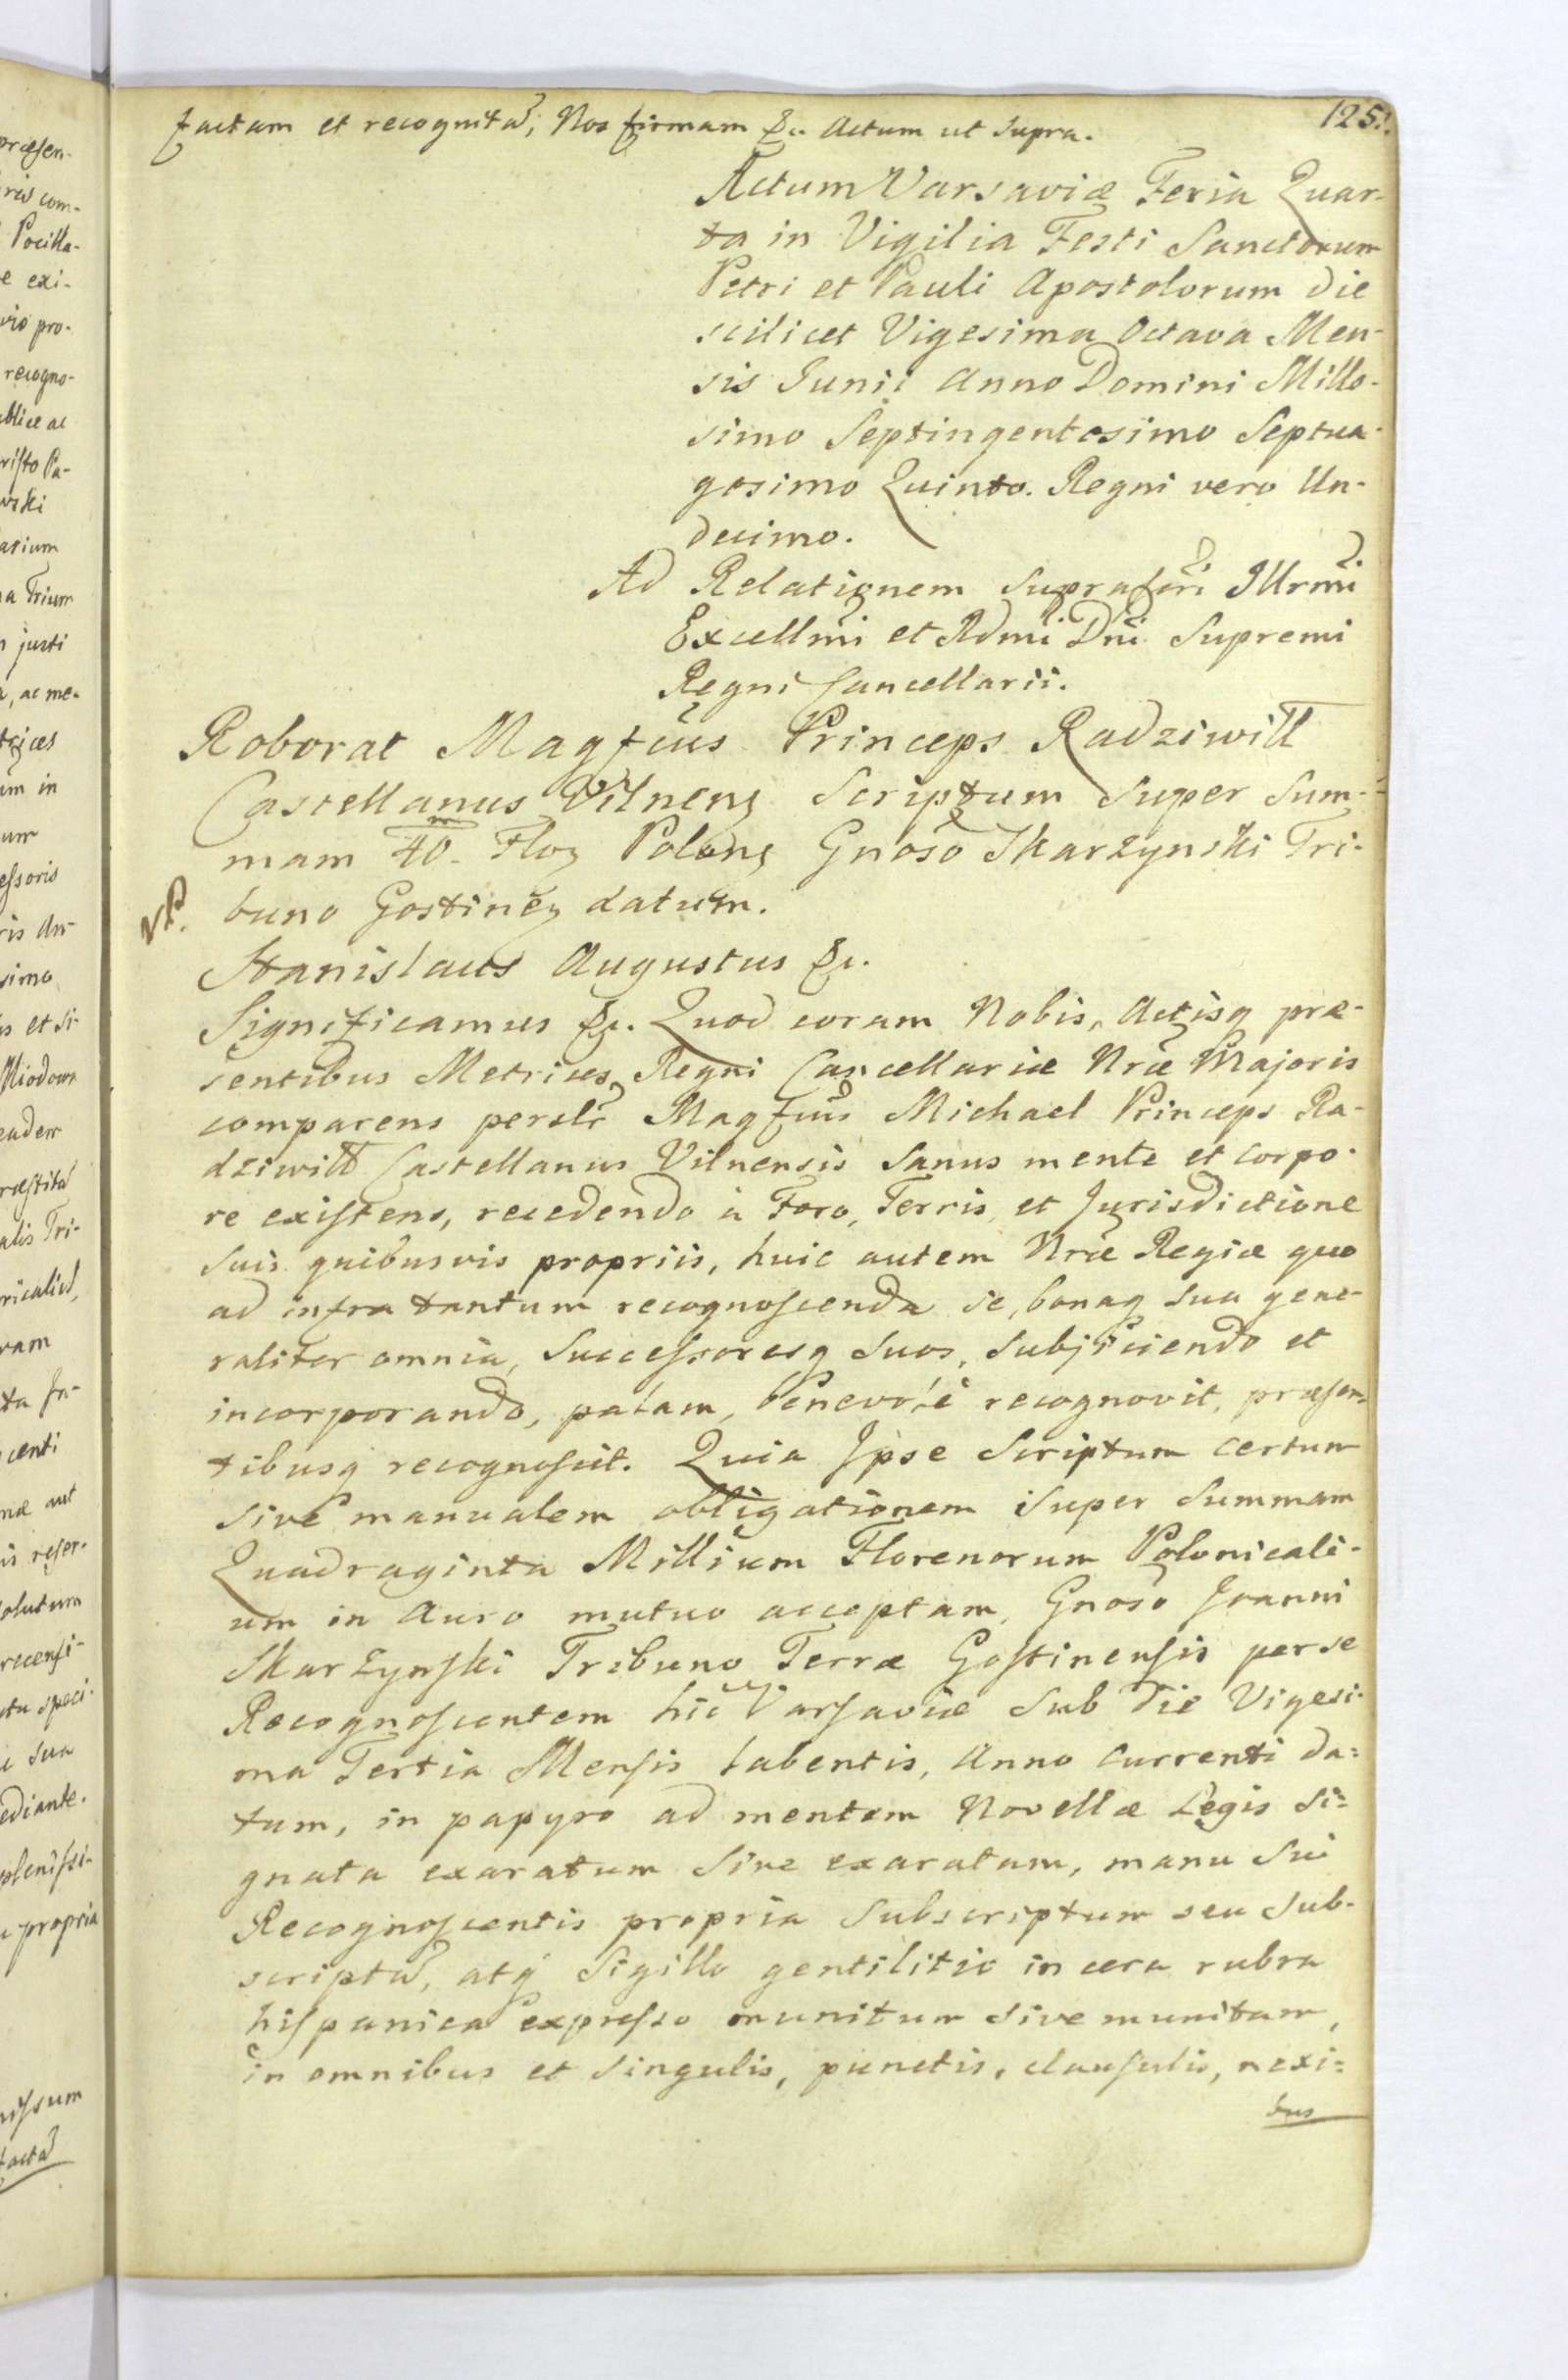 factam et recognitã, Nos firmam &c. Actum ut supra.
125.
Actum Varsaviæ Feria Quar-
ta in Vigilia Festi Sanctorum
Petri et Pauli Apostolorum die
scilicet Vigesima Octava Men-
sis Junii Anno Domini Mille-
simo Septingentesimo Septua-
gesimo Quinto. Regni vero Un-
decimo.
Ad Relationem suprafñi Illrmi
Excellmi et Rdmi Dñi Supremi
Regni Cancellarii.
Roborat Magfcus Princeps Radziwiłł
Castellanus Vilnens Scriptum super Sum-
mam 40 m Floʒ Polonʒ Gnoso Skarzynski Tri-
NB. buno Gostineʒ datum.
Stanislaus Augustus &c.
Significamus &c. Quod coram Nobis, Actisq præ-
sentibus Metrices Regni Cancellariæ Nræ Majoris
comparens perslr Magfcus Michael Princeps Ra-
dziwiłł Castellanus Vilnensis Sanus mente et corpo-
re existens, recedendo à Foro, Terris, et Jurisdictione
suis quibusvis propriis, huic autem Nræ Regiæ quo
ad infra tantum recognoscenda se, bonaq sua gene-
raliter omnia, Successoresq suos, subjiciendo et
incorporando, palam, benevole recognovit, præsen-
tibusq recognoscit. Quia Ipse Scriptum certum
sive manualem obligationem super Summam
Quadraginta Millium Florenorum Polonicali-
um in Auro mutuo acceptam, Gnoso Joanni
Skarzynski Tribuno Terræ Gostinensis per se
Recognoscentem hic Varsaviæ sub die Vigesi-
ma Tertia Mensis labentis, Anno currenti da=
tum, in papyro ad mentem Novellæ Legis si=
gnata exaratum sive exaratam, manu sui
Recognoscentis propria subscriptum seu sub-
scriptã, atq Sigillo gentilitio in cera rubra
hispanica expresso munitum sive munitam,
in omnibus et singulis, punctis, clausulis, nexi=
bus